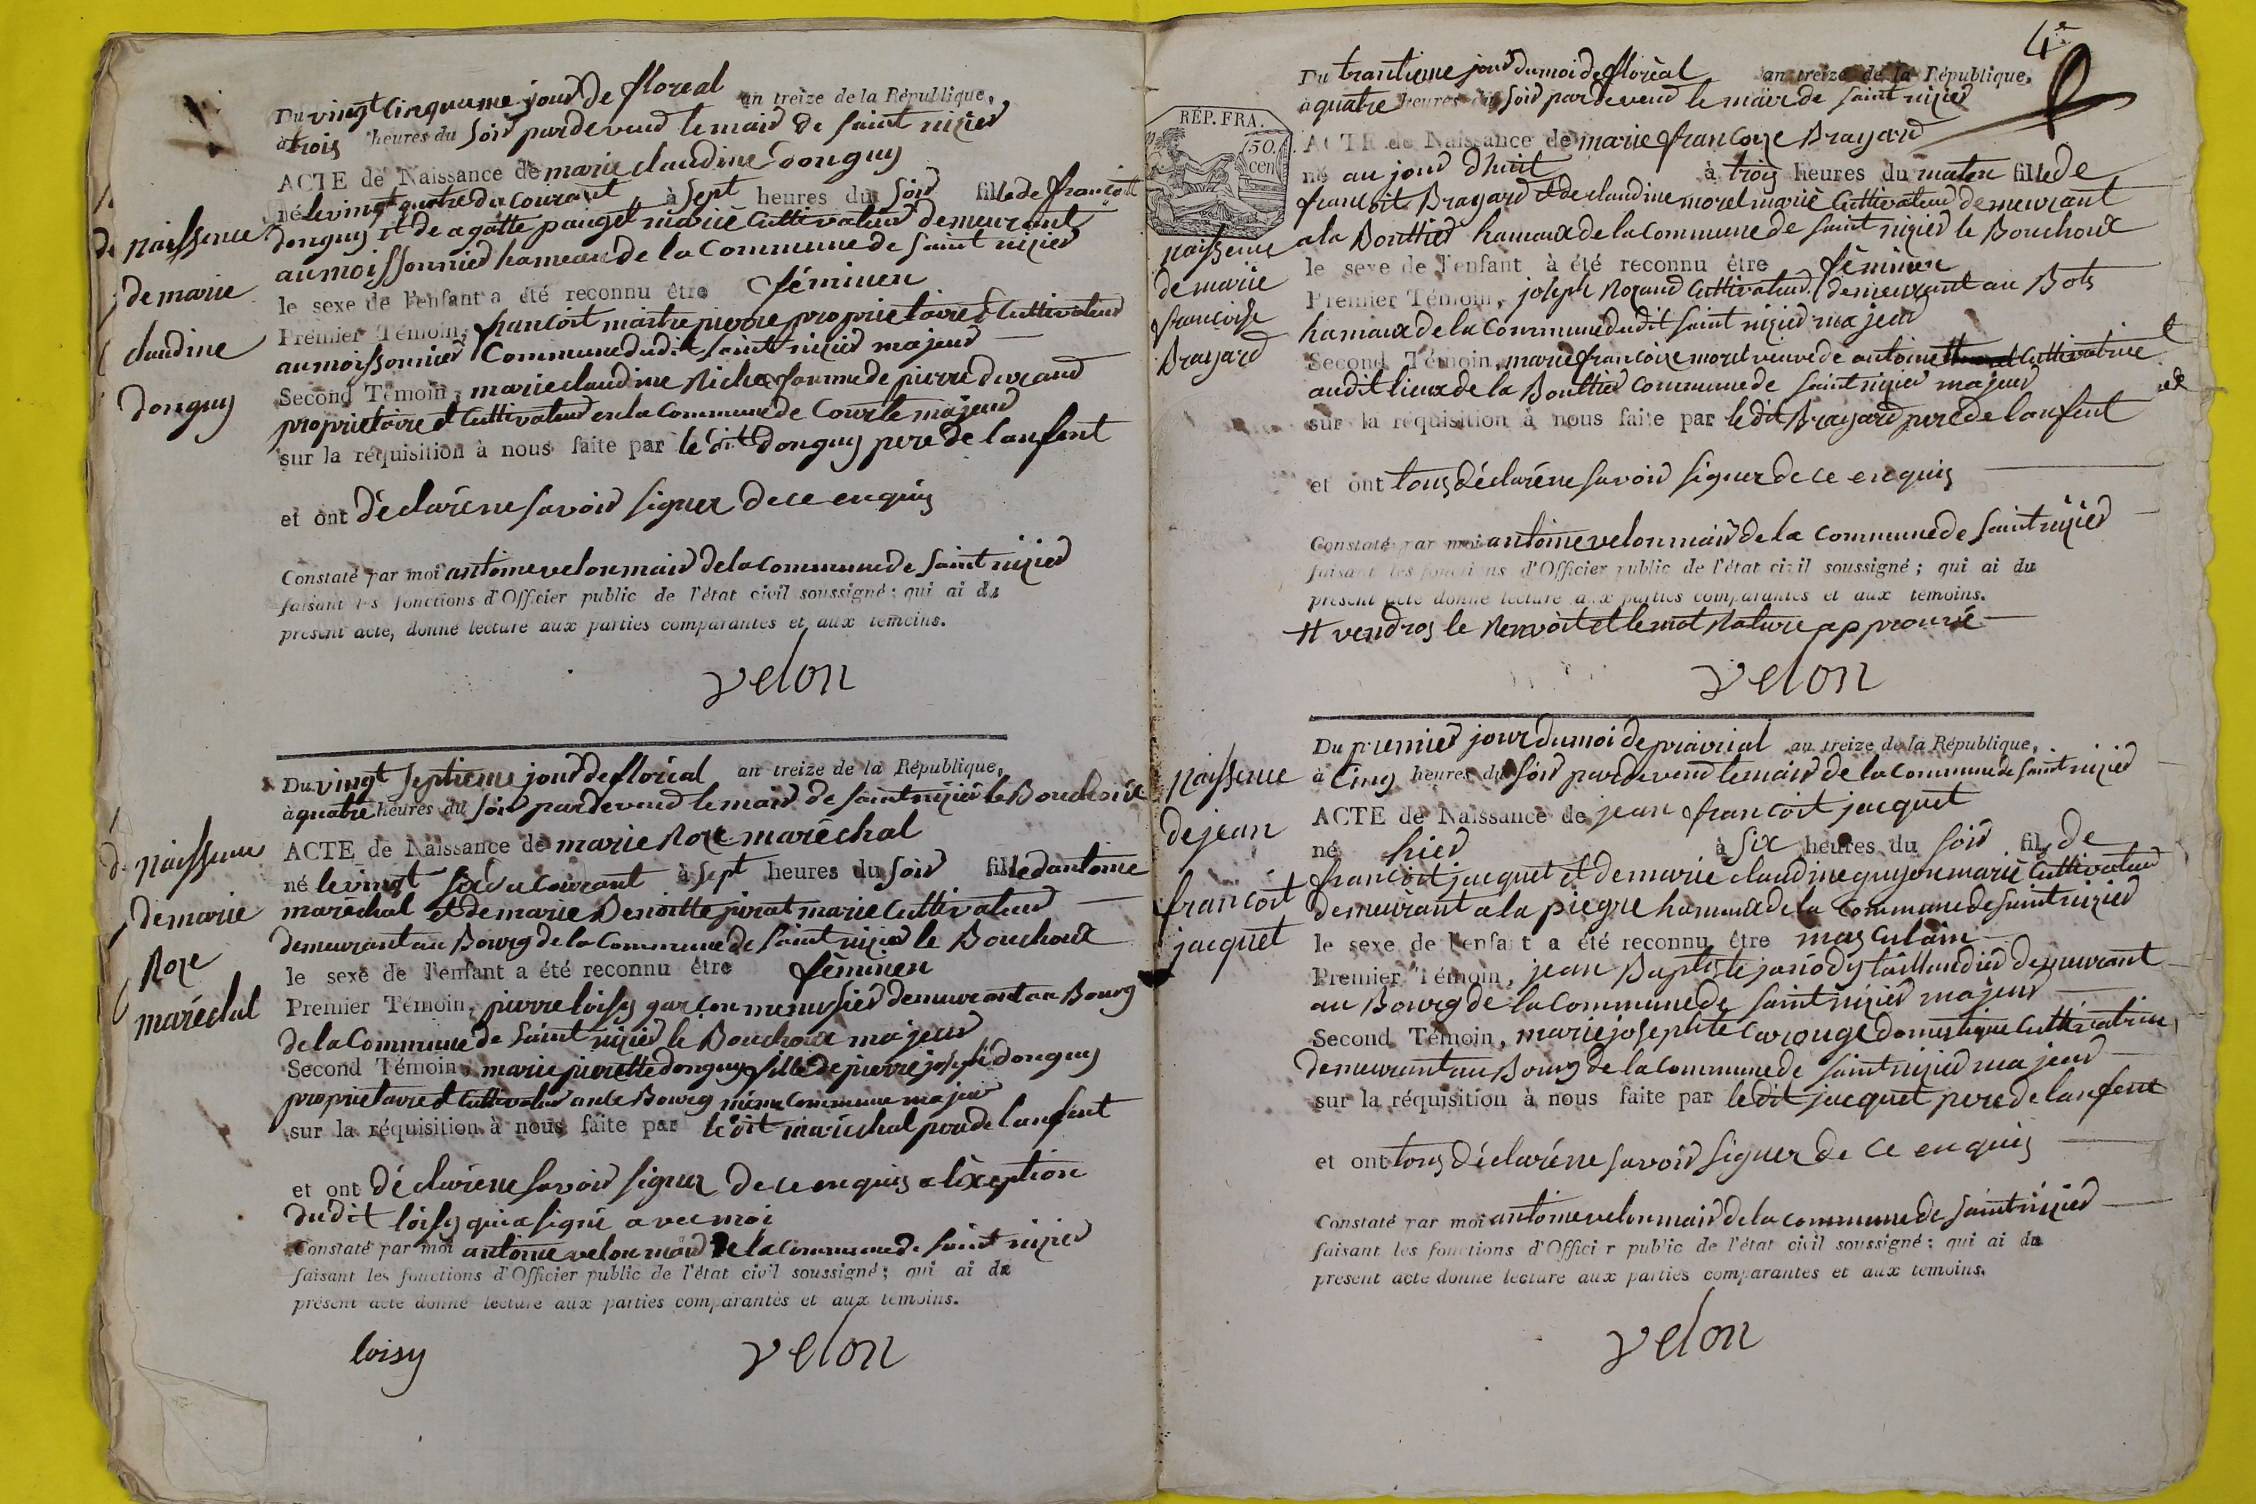 Du vingt Cinquieme jour de floreal an treize de la République,
à trois heures du soir pardevend le maire de saint nizier
ACTE de Naissance de marie claudine donguy
né le vingt quatre du courant à sept heures du soir fille de francoit
donguy et de agatte pauget mariè Cultivateur demeurant
au moissonnier hameau de la Commune de saint nizier
le sexe de l'enfant a été reconnu être féminen
Premier Témoin, francoit maitre pierre proprietaire et Cultivateur
au moissonnier Commune dudit saint nizier majeur
Second Témoin, marie claudine Niche femme de pierre durand
proprietaire et Cultivateur en la Commune de Courte majeur
sur la réquisition à nous faite par le dit donguy pere de lanfent
et ont déclaréne savoir signer de ce enquis
Constaté par moi antoine velon maire de la commune de saint nizier
faisant les fonctions d'Officier public de l'état civil soussigné; qui ai du
présent acte, donné lecture aux parties comparantes et aux témoins.
velon
naissence
de marie
claudine
donguy
Du vingt septieme jour de floréal an treize de la République,
à quatre heures du soir pardevend le maire de saint nizier le Bouchoux
ACTE de Naissance de marie Roze maréchal
né le vingt six du Courant à sept heures du soir fille dantoine
maréchal et de marie Benoitte pirat marié Cultivateur
demeurant au Bourg de la Commune de saint nizier le Bouchoux
le sexe de l'enfant a été reconnu être féminen
Premier Témoin, pierre loisy garcon menusier demeurant au Bourg
de la Commune de saint nizier le Bouchoux majeur
Second Témoin, marie pierrette donguy fille de pierre joseph donguy
proprietaire et Cultivateur au le Bourg même Commune majeur
sur la réquisition à nous faite par le dit maréchal pere de lanfent
et ont déclaréne savoir signer de ce enquis a léxeption
dudit loisy qui a signé avec moi
Constaté par moi antoine velon maire de la Commune de saint nizier
faisant les fonctions d'Officier public de l'état civil soussigné; qui ai du
présent acte donné lecture aux parties comparantes et aux témoins.
loisy velon
naissence
de marie
Roze
maréchal
4e
RÉP. FRA.
50 cen
Du trantieme jour du moi de floréal an treize de la République,
à quatre heures du soir pardevend le maire de saint nizier
ACTE de Naissance de marie francoize Brayard
né au jour dhuit à trois heures du maten fille de
francoit Brayard et de claudine morel mariè Cultivateur demeurant
a la Bouttier hameaux de la commune de saint nizier le Bouchoux
le sexe de l'enfant à été reconnu être féminen
Premier Témoin, joseph Morand Cultivateur demeurant au Bots
hameaux de la Commune dudit saint nizier majeur
Second Témoin, marie francoize morel veuve de antoine Cultivatrice
audit lieux de la Bouttier commune de saint nizier majeur
sur la réquisition à nous faite par le dit Brayard pere de lanfent
et ont tous déclaréne savoir signer de ce enquis
Constaté par moi antoine velon maire de la commune de saint nizier
faisant les fonctions d'Officier public de l'état civil soussigné; qui ai du
présent acte donné lecture aux parties comparantes et aux témoins.
le Renvoit et le mot Rature approuvé
velon
naissence
de marie
francoise
Brayard
Du premier jour du moi de priairial an treize de la République,
à Cinq heures du soir pardevend le maire de la commune de saint nizier
ACTE de Naissance de jean francoit jacquet
né hier à six heures du soir fils de
francoit jacquet et de marie claudine guyon marié Cultivateur
demeurant a la piegre hameaux de la commune de saint nizier
le sexe de l'enfant a été reconnu être masculain
Premier Témoin, jean Baptiste jariody taillandier demeurant
au Bourg de la Commune de saint nizier majeur
Second Témoin, marie josephte Carouge domestique Cultivatrice
demeurant au Bourg de la commune de saint nizier majeur
sur la réquisition à nous faite par le dit jacquet pere de lanfent
et ont tous déclaréne savoir signer de ce enquis
Constaté par moi antoine velon maire de la commune de saint nizier
faisant les fonctions d'Officier public de l'état civil soussigné; qui ai du
présent acte donné lecture aux parties comparantes et aux témoins.
velon
naissence
de jean
francoit
jacquet